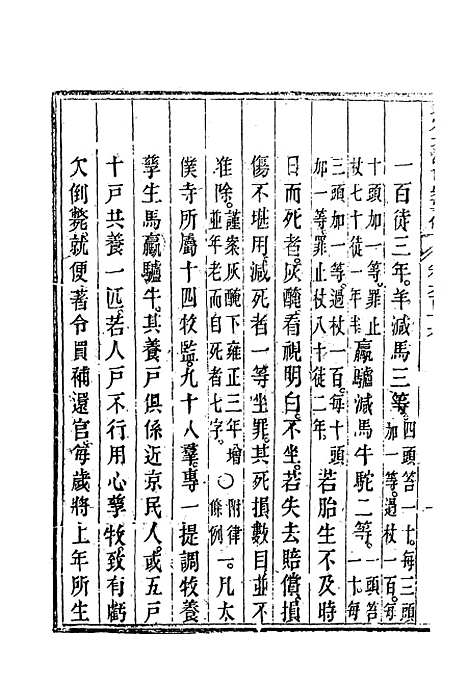 一百徒三年。羊減馬三等。四頭笞一十。每三頭加一等。過杖一百。每
十頭加一等。罪止杖七十徒一年半驘驢減馬牛駝二等。一頭笞一十。每
三頭加一等。過杖一百。每十頭加一等罪止杖八十徒二年。若胎生不及時
日而死者。灰醃看視明白。不坐。若失去賠償。損
傷不堪用。減死者一等坐罪。其死損數目並不
准除。謹案灰醃下雍正三年增並年老而自死者七字。○附律條例一。凡太
僕寺所屬十四牧監。九十八羣。專一提調牧養
孳生馬驘驢牛。其養戶俱係近京民人。或五戶
十戶共養一匹。若人戶不行用心孳牧。致有虧
欠倒斃。就便著令買補還官。每歲將上年所生